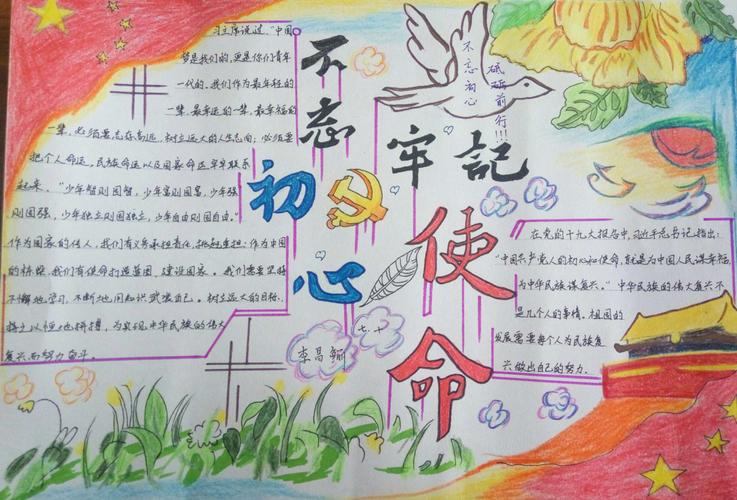 习主席说过,“中国
梦是我们的,更是你们青年
一代的。我们作为最年轻的
一辈,最幸运的一辈,最幸福的
一辈,必须要志存高远,树立远大的人生志向;必须要
把个人命运,民族命运以及国家命运牢牢联系
起来。“少年智则国智,少年富则国富,少年强
则国强,少年独立则国独立,少年自由则国自由。”
作为国家的传人,我们有义务承担责任,挑起重担;作为中国
的栋梁,我们有使命打造蓝图,建设国家。我们需要坚持
不懈地学习,不断地用知识武装自己。树立远大的目标,
持之以恒地拼搏,为实现中华民族的伟大
复兴而努力奋斗。
不忘
初心
牢記
使命
不忘初心
砥砺前行!!!
七、十
李昌
在党的十九大报告中,习近平总书记指出:
“中国共产党人的初心和使命,就是为中国人民谋幸福,
为中华民族谋复兴。”中华民族的伟大复兴不
是几个人的事情。祖国的
发展需要每个人为民族复
兴做出自己的努力.